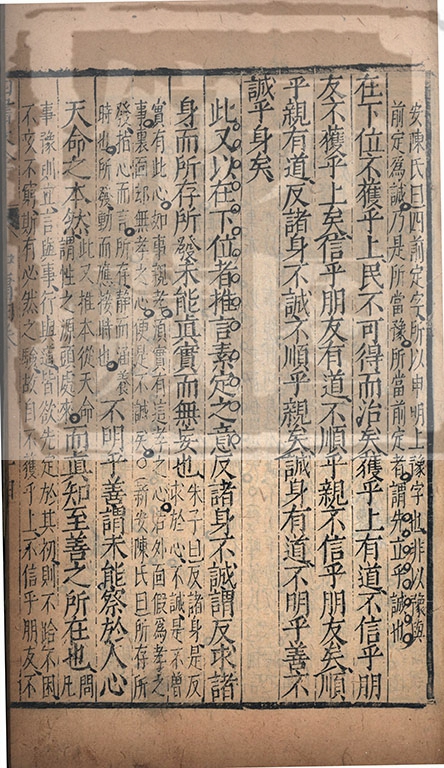 安陳氏曰四前定字所以申明上豫字也非以豫與
前定為誠乃是所當豫所當前定者謂先立乎誠也
在下位不獲乎上民不可得而治矣獲乎上有道不信乎朋
友不獲乎上矣信乎朋友有道不順乎親不信乎朋友矣順
乎親有道反諸身不誠不順乎親矣誠身有道不明乎善不
誠乎身矣
此又以在下位者推言素定之意反諸身不誠謂反求諸
身而所存所發未能真實而無妄也朱子曰反諸身是反
求於心不誠是不曾
實有此心如事親孝須實有這孝之心若外面假為孝之
事裏面却無孝之心便是不誠矣○新安陳氏曰所存所
發指心而言所存靜而涵養
時也所發動而應接時也不明乎善謂未能察於人心
天命之本然此又推本從天命
謂性之源頭處來而真知至善之所在也問
凡
事豫則立言與事行與道皆欲先定於其初則不跲不困
不疚不窮斯有必然之驗故自不獲乎上不信乎朋友不